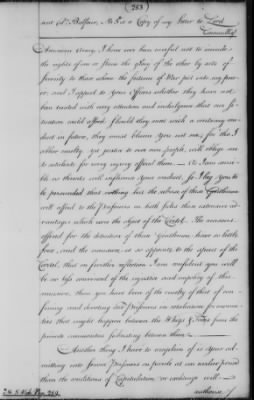 (283)
and Col. Balfour, No. 5 is a Copy of my letter to Lord
Cornwallis
American Army, I have ever been careful not to wound
the rights of one or stain the glory of the other by acts of
severity to those whom the fortune of War put into my pow-
er, and I appeal to your Officers whether they have not
been treated with every attention and indulgence that our si-
tuation could afford. Should they meet with a contrary con-
duct in future, they must blame you not me, for tho' I
abhor cruelty yet justice to our own people, will oblige me
to retaliate for every injury offered them — As I am sensi-
ble no threats will influence your conduct, so I beg you to
be persuaded that nothing but the release of these Gentlemen
will afford to the Prisoners on both sides those extensive ad-
vantages which were the object of the Cartel. The reasons
offered for the detention of these Gentlemen have so little
force, and the measure is so opposite to the spirit of the
Cartel, that on further reflection I am confident you will
be no less convinced of the injustice and impolicy of this
measure, than you have been of the cruelty of that of con-
fining and treating our Prisoners in retaliation for enormi-
ties that might happen between the Whigs & Tories from the
private animosities subsisting between them —
Another thing I have to complain of is your ad-
mitting some Prisoners on parole at an earlier period
than the conditions of Capitulation or exchange will
authorise. I